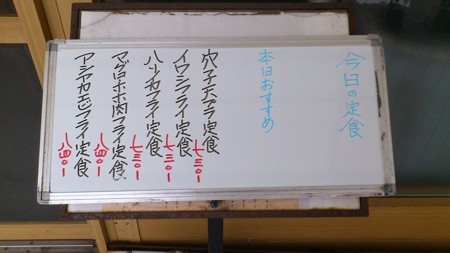 今日の定食
本日おすすめ
穴子天プラ定食 七三〇ー
イワシフライ定食 七三〇ー
ハムカツフライ定食 七三〇ー
マグロホホ肉フライ定食 八四〇ー
アジヤカエビフライ定食 八四〇ー